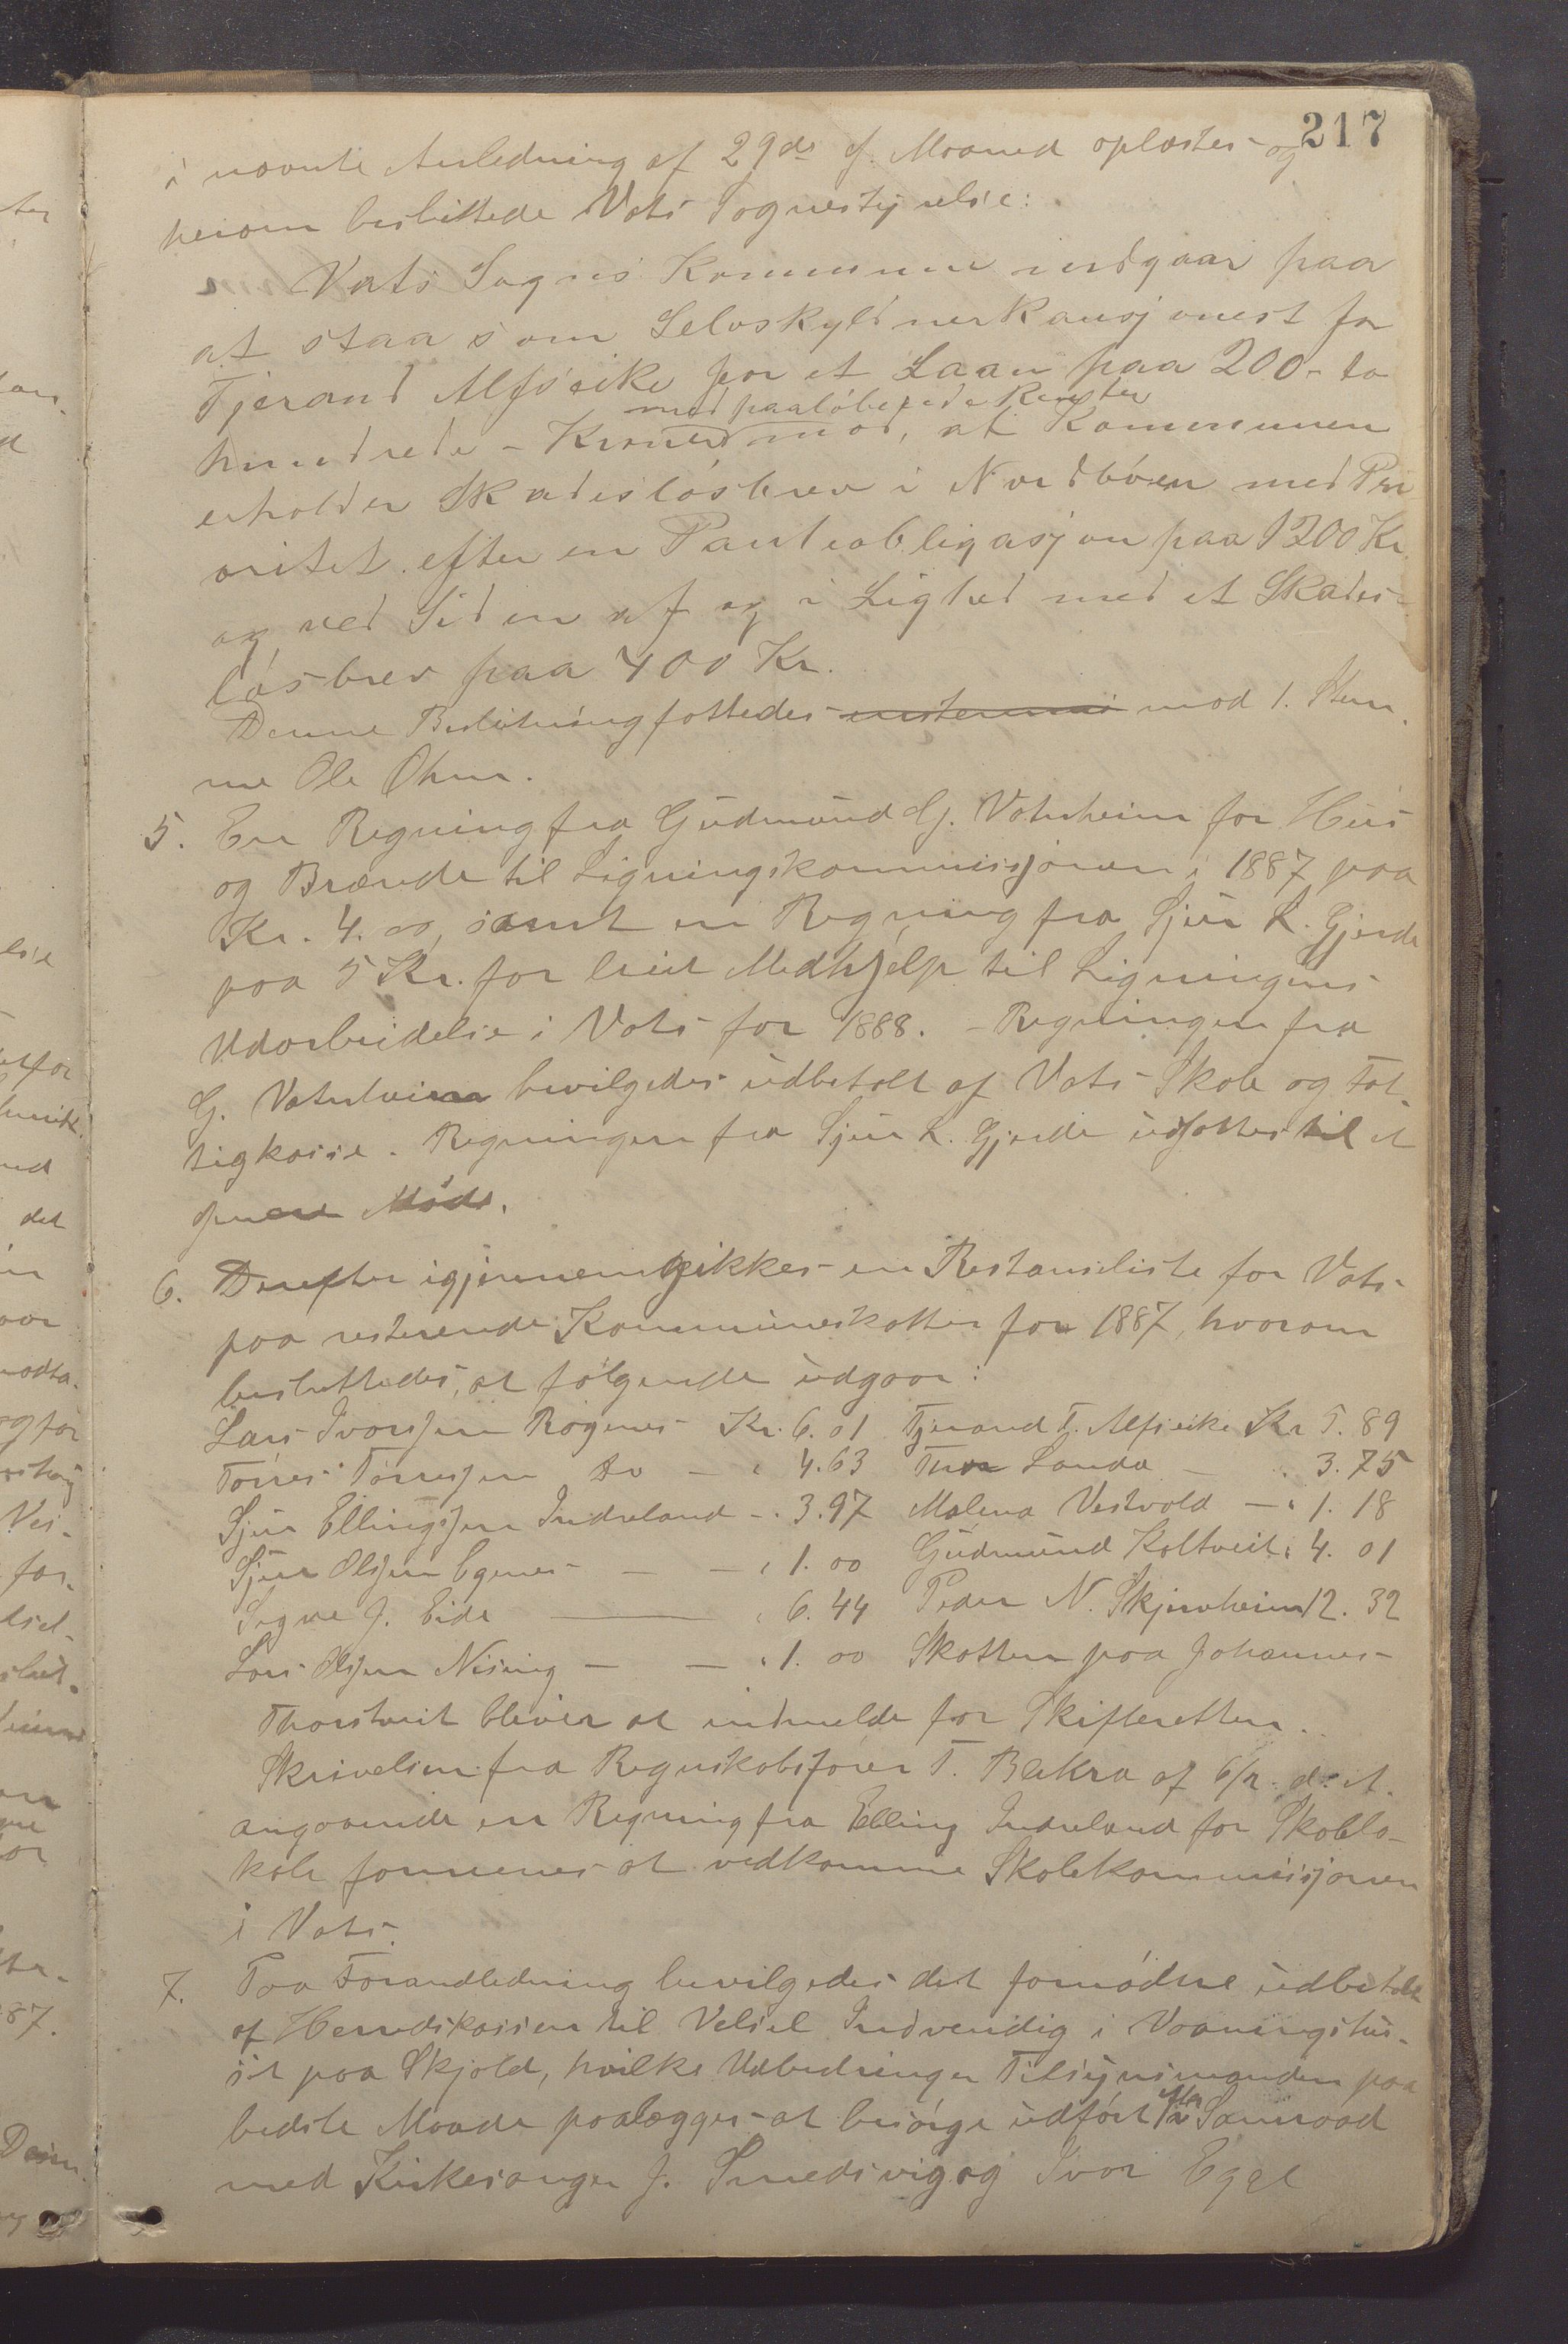 217
i nævnte Anledning af 29de f. Maaned oplæstes og
herom besluttede Vats Sognestyrelse:
Vats Sogns Kommune indgaar paa
at staa som Selvskyldnerkausjonist for
Tjerand Alfseike for et Laan paa 200 - to
med paaløbende Renter
hundrede - Kroner mod, at Kommunen
erholder Skadesløsbrev i Nordbøen med Pri
oritet efter en Panteobligasjon paa 1200 Kr.
og ved Siden af og i Lighed med et Skades-
løsbrev paa 400 Kr.
Denne Beslutning fattedes mod 1. Stem-
me Ole Øhrn.
5. En Regning fra Gudmund G. Vatnheim for Hus
og Brænde til Ligningskommissjonen i 1887 paa
Kr. 4.00, samt en Regning fra Sjur L. Gjerde
paa 5 Kr. for leiet Medhjelp til Ligningens
Udarbeidelse i Vats for 1888. - Regningen fra
G. Vatnheim bevilgedes udbetalt af Vats Skole og Fat-
tigkasse. Regningen fra Sjur L. Gjerde udsattes til et
senere Møde.
6. Derefter igjennemgikkes en Restanseliste for Vats
paa resterende Kommuneskatter for 1887, hvorom
besluttedes, at følgende udgaar:
Lars Ivarsjen Røgenes Kr. 6.01 Tjerand T. Alfseike Kr 5.89
Torres Torresjen Do — " 4.63 Thor Landa — " 3.75
Sjur Ellingsjen Indreland - " 3.97 Malena Vestvold — " 1.18
Sjur Olsjen Egenes — — " 1.00 Gudmund Koltveit " 4.01
Signe J. Eide — " 6.44 Peder N. Skjerveheim 12.32
Lars Olsjen Nising — — " 1.00 Skatten paa Johannes
Thorstveit bliver at indmelde for Skifteretten.
Skrivelsen fra Regnskabsfører T. Bakra af 6/2 d. A.
angaaende en Regning fra Elling Indreland for Skolelo-
kale formenes at vedkomme Skolekommissjonen
i Vats.
7. Paa Forandledning bevilgedes det fornødne udbetalt
af Herredskassen til Vedsel Indvendig i Vaaningshu-
set paa Skjold, hvilke Udbedringer Tilsynsmanden paa
bedste Maade paalægges at besørge udført i Samraad
med Kirkesanger J. Smedsvig og Ivar Egge